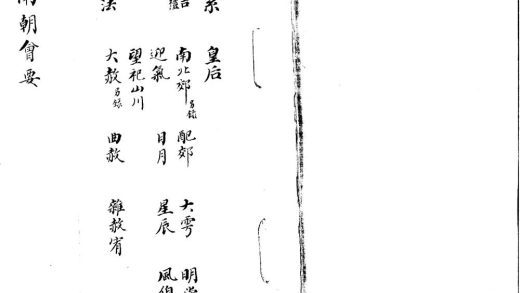 系 皇后
南北郊 另錄 配郊 大雩 明
迎氣 日月 星辰 風
望祀山川
法 大赦 另錄 曲赦 雜赦宥
南朝會要